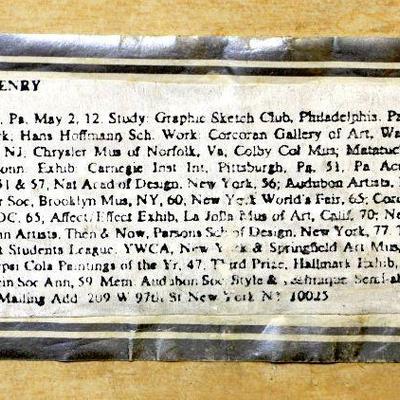 ENRY
, Pa. May 2, 12. Study: Graphic Sketch Club, Philadelphia. Pa
rk, Hans Hoffmann Sch. Work: Corcoran Gallery of Art, Wa
NJ, Chrysler Mus of Norfolk, Va, Colby Col Mus; Matatuc
onn. Exhib: Carnegie Inst Int, Pittsburgh, Pa, 51, Pa Ac
51 & 57, Nat Acad of Design, New York, 56; Audubon Artists,
r Soc, Brooklyn Mus, NY, 60, New York World's Fair, 65; Cor
DC, 65, Affect/Effect Exhib, La Jolla Mus of Art, Calif, 70; Ne
an Artists, Then & Now, Parsons Sch of Design, New York, 77. T
t Students League, YWCA, New York & Springfield Art Mus,
epsi Cola Paintings of the Yr, 47, Third Prize, Hallmark Exhib,
ein Soc Ann, 59. Mem: Audubon Soc. Style & Technique:
Mailing Add: 209 W 97th St New York NY 10025